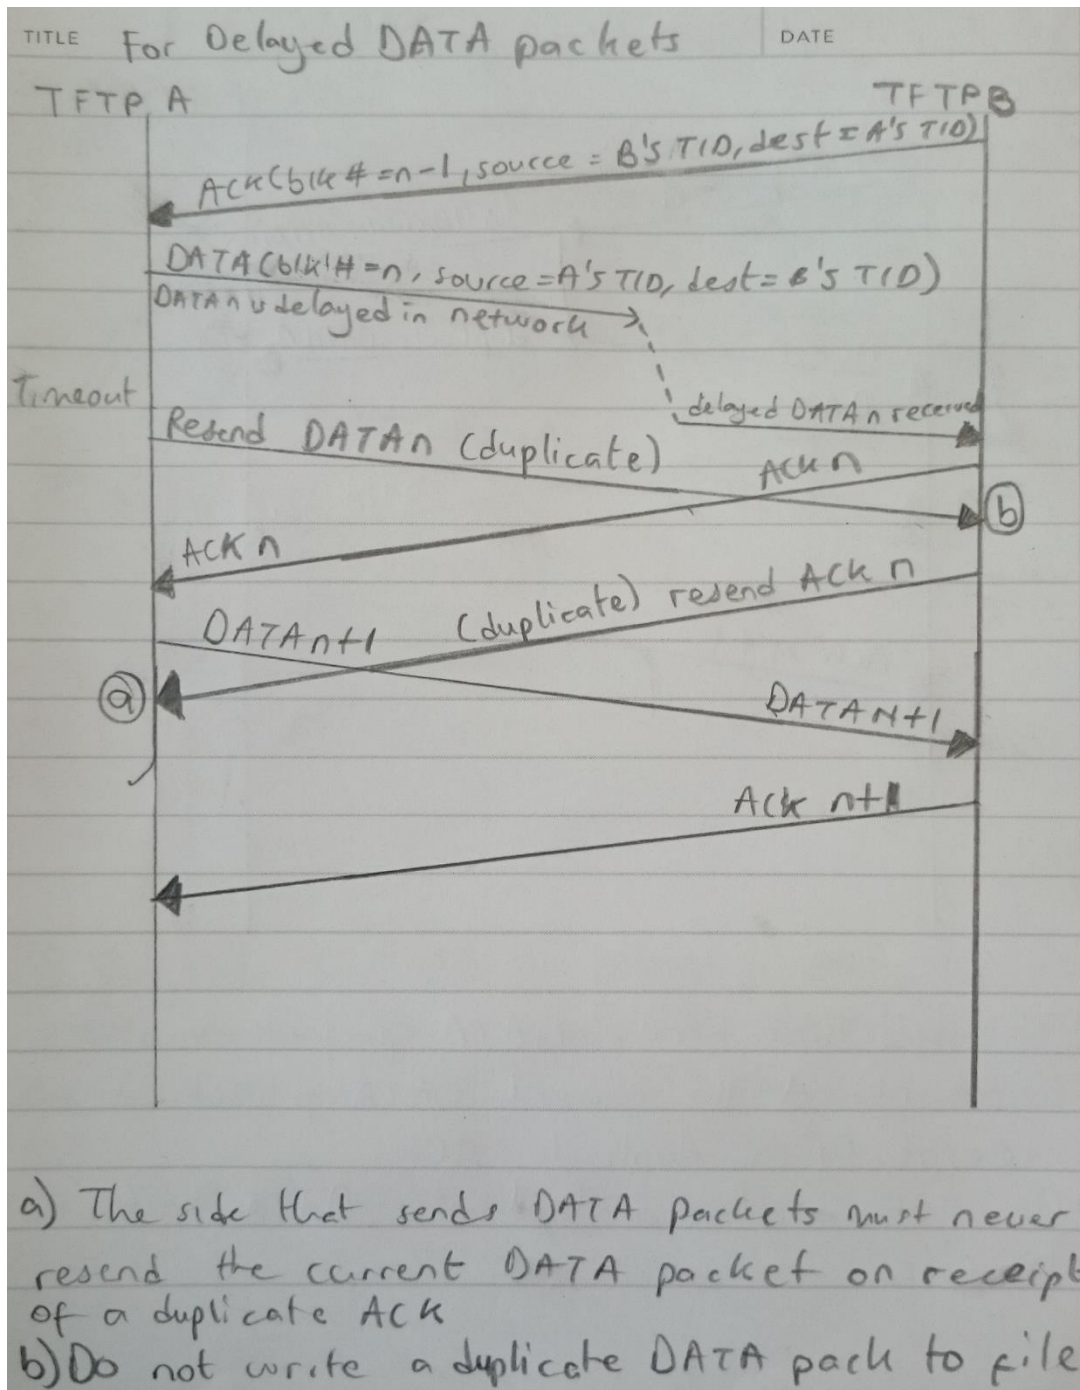 TITLE For Delayed DATA packets DATE
TFTP A TFTP B
ACK (blk # = n-1, source = B's TID, dest = A's TID)
DATA (blk # = n, source = A's TID, dest = B's TID)
DATA n is delayed in network
Timeout
delayed DATA n received
Resend DATA n (duplicate)
ACK n
b
ACK n
(duplicate) resend ACK n
DATA n+1
a
DATA N+1
Ack n+1
a) The side that sends DATA packets must never
resend the current DATA packet on receipt
of a duplicate ACK
b) Do not write a duplicate DATA pack to file